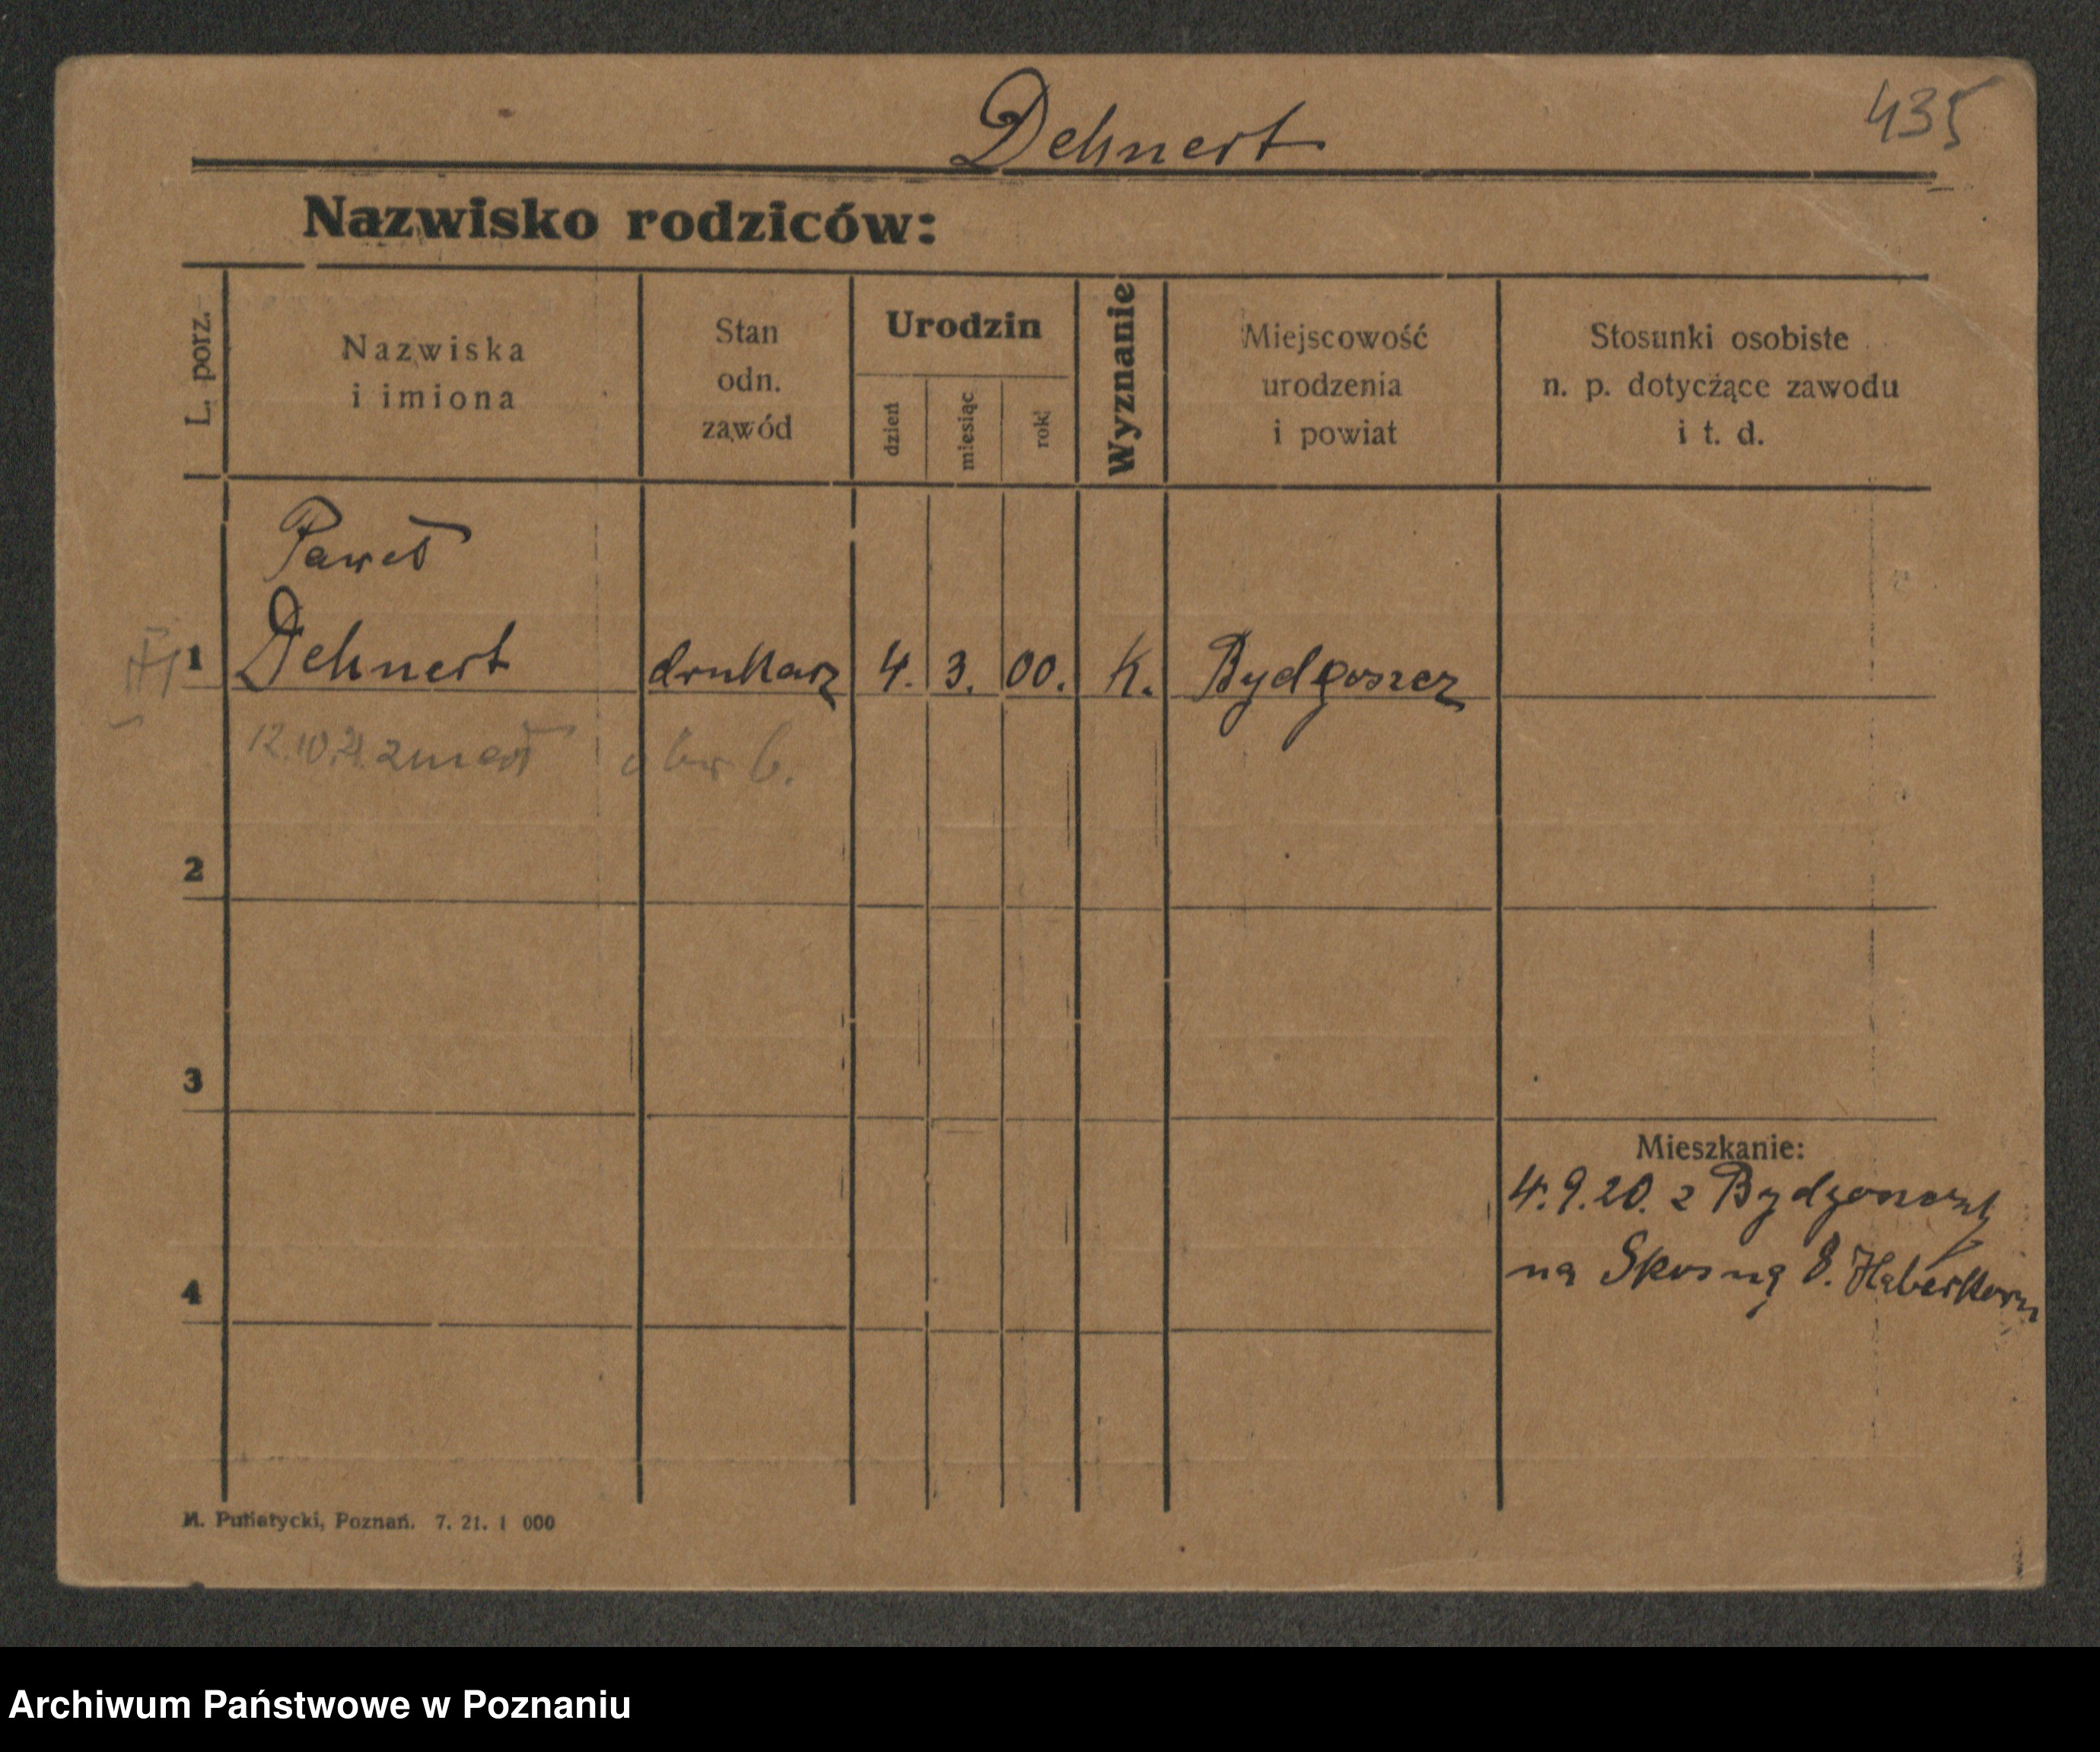 Dehnert
435
Nazwisko rodziców:
L. porz.
Nazwiska
i imiona
Stan
odn.
zawód
Urodzin
dzień
miesiąc
rok
Wyznanie
Miejscowość
urodzenia
i powiat
Stosunki osobiste
n. p. dotyczące zawodu
i t. d.
Paweł
1 Dehnert drukarz 4. 3. 00. K. Bydgoszcz
12.10.21. zmarł
2
3
4
Mieszkanie:
4.9.20. z Bydgoszczy
na Skośną 8. Haberkorn
M. Putiatycki, Poznań. 7. 21. 1 000
Archiwum Państwowe w Poznaniu